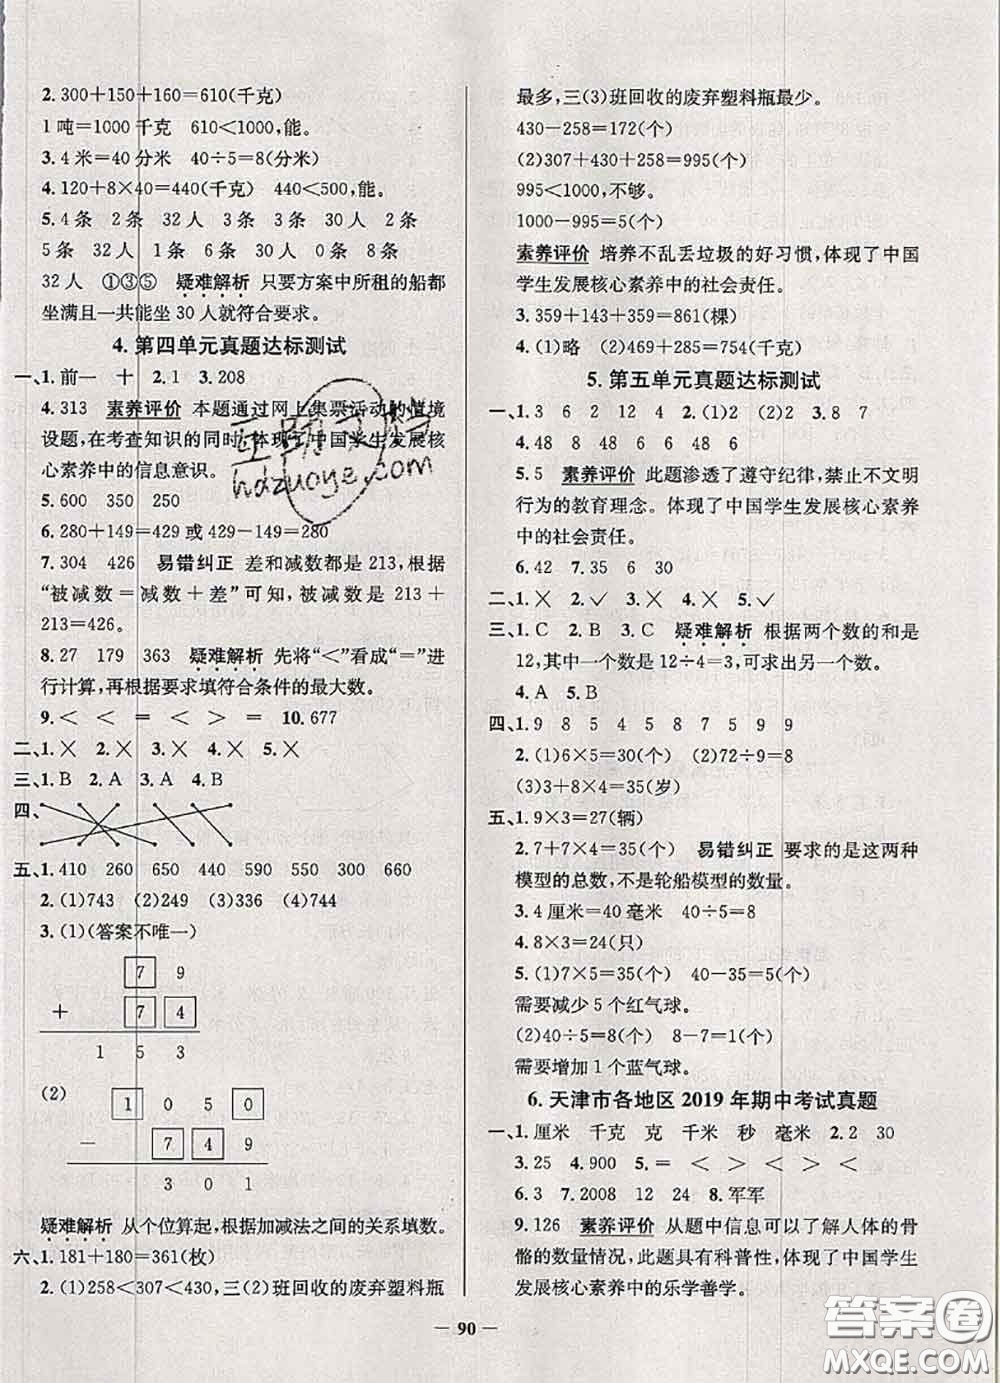 2.300＋150＋160＝610(千克)
1吨＝1000千克　610＜1000,能。
3.4米＝40分米　40÷5＝8(分米)
4.120＋8×40＝440(千克)　440＜500,能。
5.4条　2条　32人　3条　3条　30人　2条
5条　32人　1条　6条　30人　0条　8条
32人　①③⑤　疑难解析　只要方案中所租的船都
坐满且一共能坐30人就符合要求。
4.第四单元真题达标测试
一、1.前一　十　2.1　3.208
4.313　素养评价　本题通过网上集票活动的情境
设题,在考查知识的同时,体现了中国学生发展核
心素养中的信息意识。
5.600　350　250
6.280＋149＝429或429－149＝280
7.304　426　易错纠正　差和减数都是213,根据
“被减数＝减数＋差”可知,被减数是213＋
213＝426。
8.27　179　363　疑难解析　先将“＜”看成“＝”进
行计算,再根据要求填符合条件的最大数。
9.＜　＜　＝　＜　＞　＝　10.677
二、1.×　2.×　3.×　4.×　5.×
三、1.B　2.A　3.A　4.B
四、
五、1.410　260　650　440　590　550　300　660
2.(1)743　(2)249　(3)336　(4)744
3.(1)(答案不唯一)
7 9
＋ 7 4
1 5 3
(2)
1 0 5 0
－ 7 4 9
3 0 1
疑难解析　从个位算起,根据加减法之间的关系填数。
六、1.181＋180＝361(枚)
2.(1)258＜307＜430,三(2)班回收的废弃塑料瓶
最多,三(3)班回收的废弃塑料瓶最少。
430－258＝172(个)
(2)307＋430＋258＝995(个)
995＜1000,不够。
1000－995＝5(个)
素养评价　培养不乱丢垃圾的好习惯,体现了中国
学生发展核心素养中的社会责任。
3.359＋143＋359＝861(棵)
4.(1)略　(2)469＋285＝754(千克)
5.第五单元真题达标测试
一、1.3　6　2　12　4　2.(1)2　(2)2　3.8　7
4.48　8　48　6　48　6
5.5　素养评价　此题渗透了遵守纪律,禁止不文明
行为的教育理念。体现了中国学生发展核心素养
中的社会责任。
6.42　7.35　6　30
二、1.×　2.✓　3.×　4.×　5.✓
三、1.C　2.B　3.C　疑难解析　根据两个数的和是
12,其中一个数是12÷4＝3,可求出另一个数。
4.A　5.B
四、1.9　8　5　4　5　8　7　5　9　9
2.(1)6×5＝30(个)　(2)72÷9＝8
(3)3＋8×4＝35(岁)
五、1.9×3＝27(辆)
2.7＋7×4＝35(个)　易错纠正　要求的是这两种
模型的总数,不是轮船模型的数量。
3.4厘米＝40毫米　40÷5＝8
4.8×3＝24(只)
5.(1)7×5＝35(个)　40－35＝5(个)
需要减少5个红气球。
(2)40÷5＝8(个)　8－7＝1(个)
需要增加1个蓝气球。
6.天津市各地区2019年期中考试真题
一、1.厘米　千克　克　千米　秒　毫米　2.2　30
3.25　4.900　5.＝　＜　＞　＜　＞　＜
6.3　7.2008　12　24　8.军军
9.126　素养评价　从题中信息可以了解人体的骨
骼的数量情况,此题具有科普性,体现了中国学生
发展核心素养中的乐学善学。
— 90 —
hdzuoye.com
答案圈
MXQE.COM